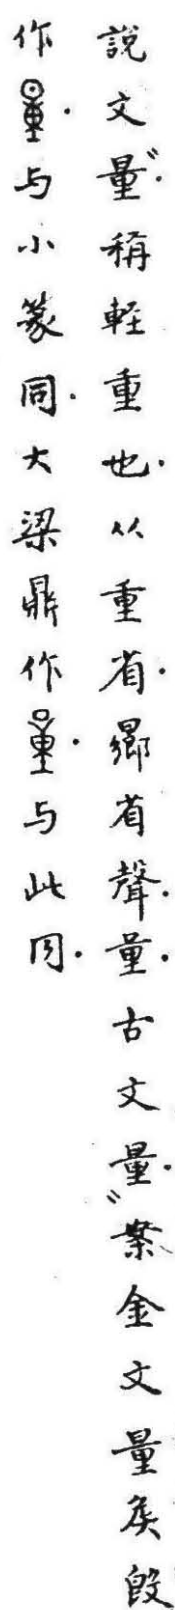 說文"量.稱輕重也.从重省.曏省聲.量.古文量."案金文量矦𣪘
作.与小篆同.大梁鼎作.与此同.